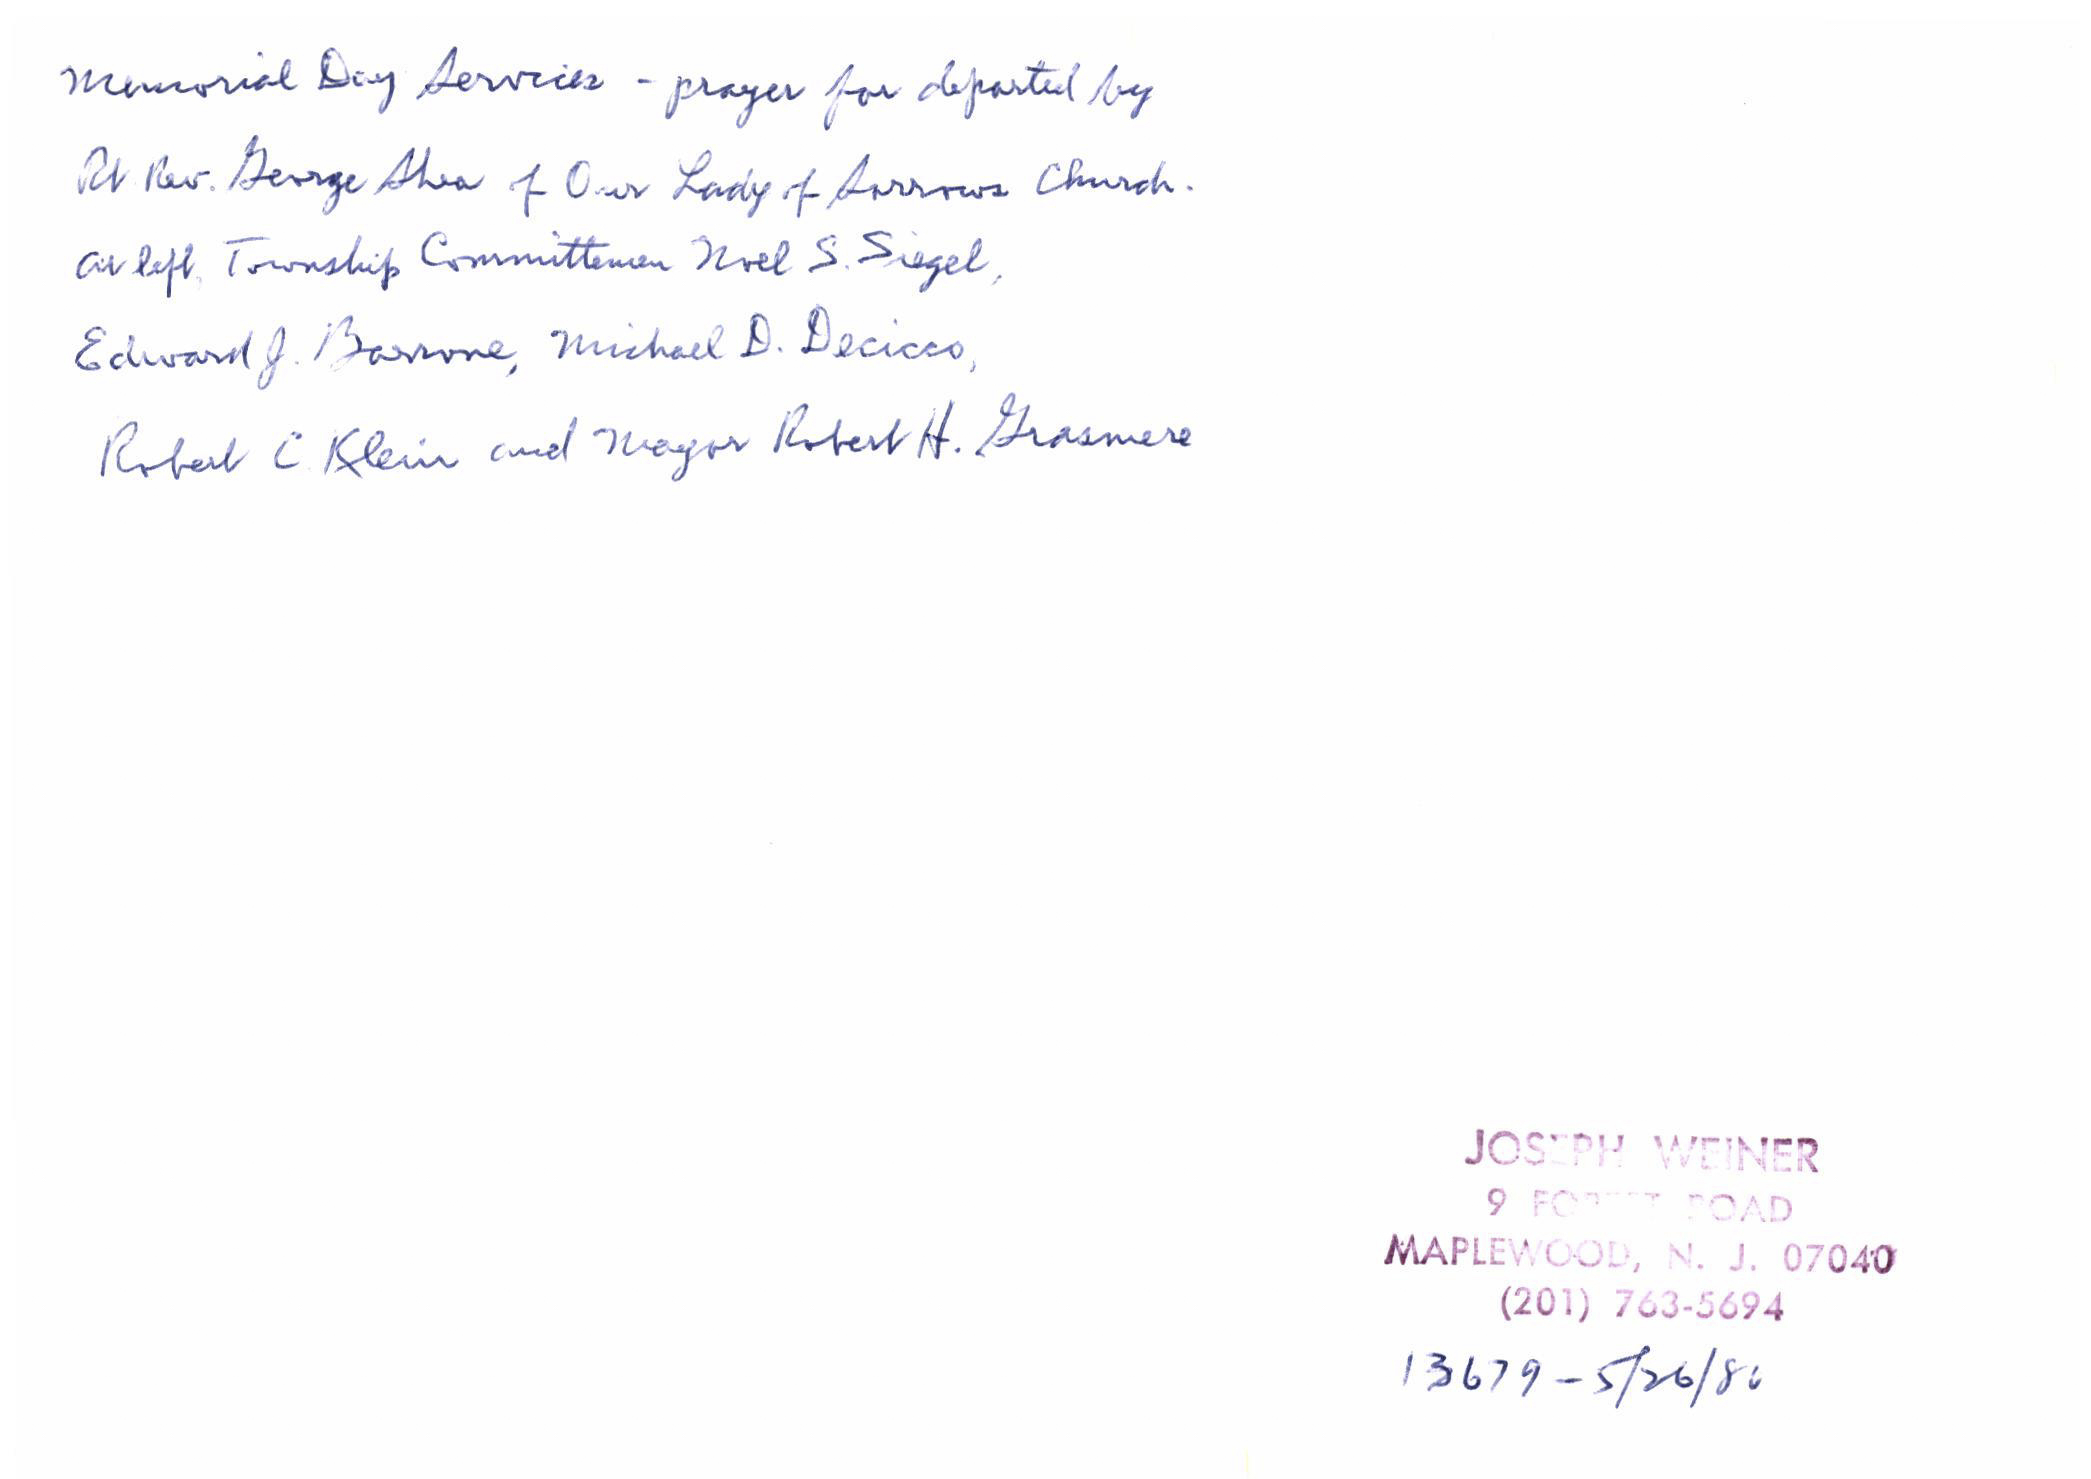 Memorial Day Services - prayer for departed by
Rt Rev. George Shea of Our Lady of Sorrows Church.
At left, Township Committemen Noel S. Siegel,
Edward J. Barrone, Michael D. Decicco,
Robert C. Klein and Mayor Robert H. Grasmere
JOSEPH WEINER
9 FOREST ROAD
MAPLEWOOD, N. J. 07040
(201) 763-5694
13679 - 5/26/86